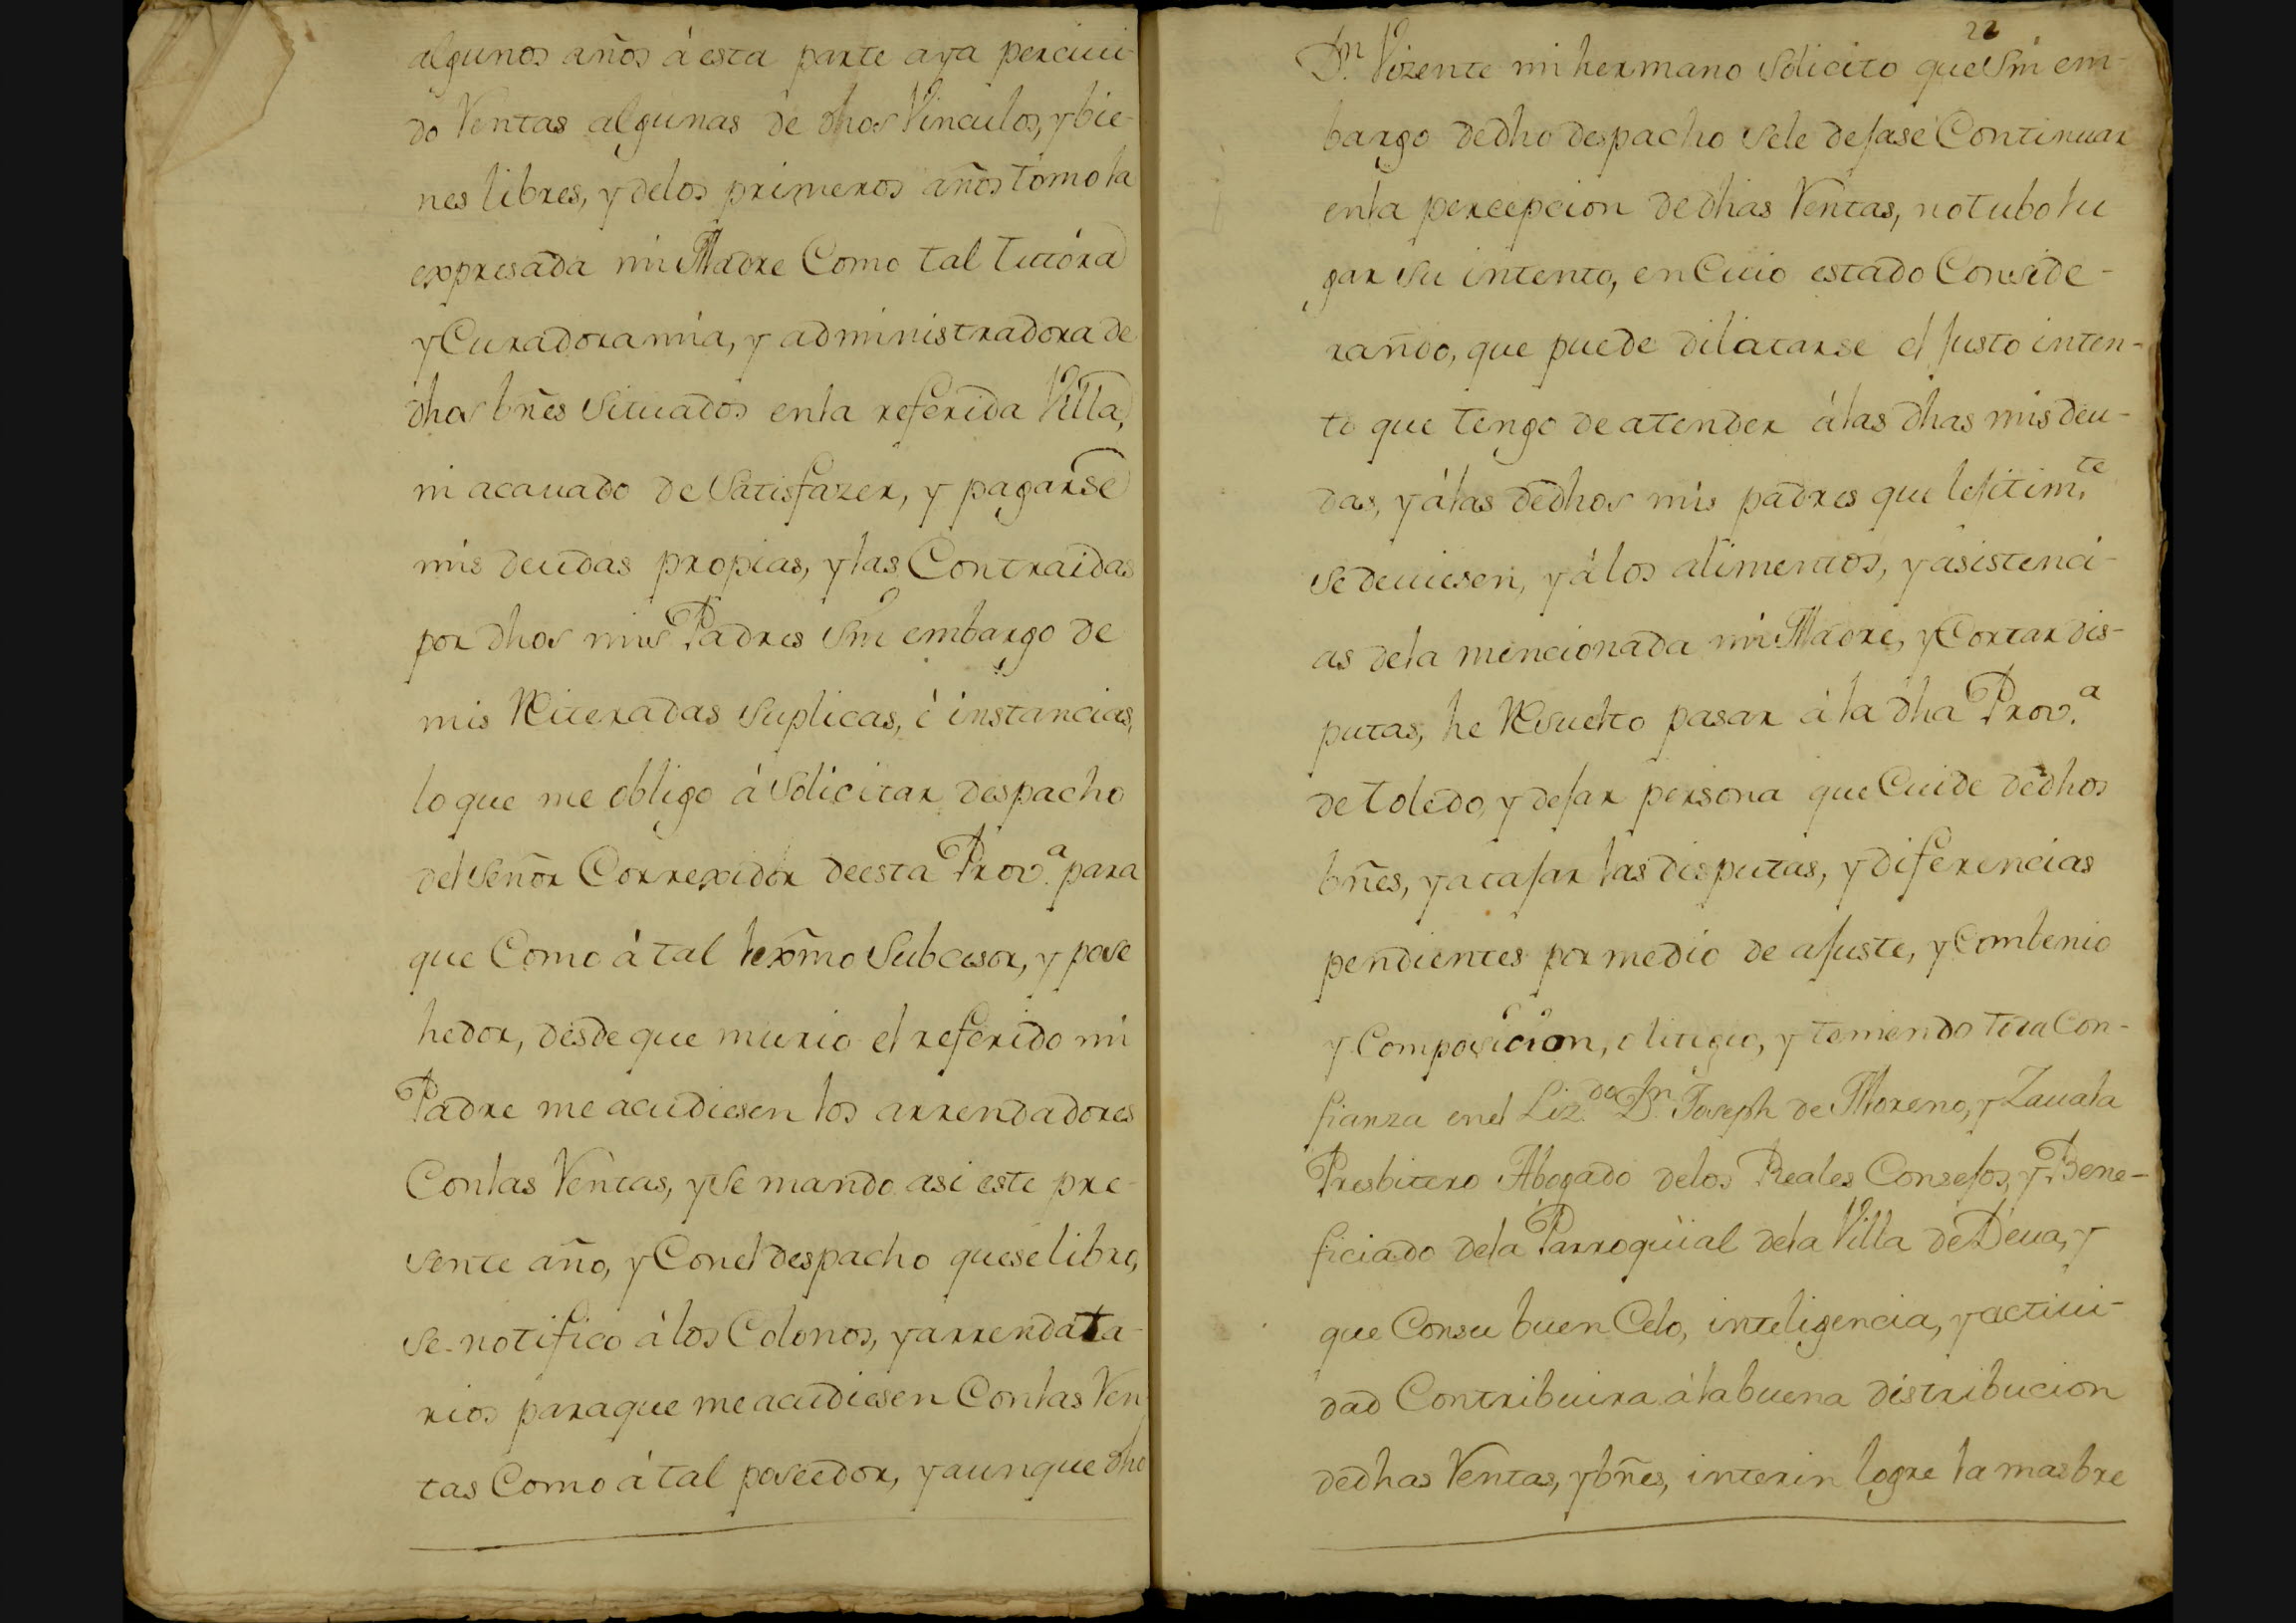 algunos años á esta parte aya perciui-
do Rentas algunas de dhos Vinculos, y bie-
nes libres, y delos primeros años tomo la
expresada mi Madre Como tal tutóra
y Curadora mia, y administradora de
dhos bñes Situados enla referida Villa,
ni acauado de Satisfazer, y pagarse
mis deudas propias, y las Contraidas
por dhos mis Padres Sin embargo de
mis Reiteradas Suplicas, é instancias,
lo que me obligo á Solicitar despacho
del Señor Correxidor de esta Prov.ª para
que Como á tal lexmo Subcesor, y pose
hedor, desde que murio el referido mi
Padre me acudiesen los arrendadores
Con las Rentas, y Se mando asi este pre-
sente año, y Con el despacho que se libro,
se notifico á los Colonos, y arrendata-
rios para que me acudiesen Con las Ren
tas Como á tal poseedor, y aunque dho
22
Dn. Vizente mi hermano Solicito que Sin em-
bargo de dho despacho Se le dejase Continuar
en la percepcion de dhas Rentas, no tubo lu
gar Su intento, en Cuio estado Conside-
rando, que puede dilatarse el justo inten-
to que tengo de atender á las dhas mis deu-
das, y á las de dhos mis padres que lejitim.te
se deuiesen, y á los alimentos, y asistenci-
as de la mencionada mi Madre, y Cortar dis-
putas, he Resuelto pasar á la dha Prov.ª
de toledo, y dejar persona que Cuide de dhos
bñes, y atajar las disputas, y diferencias
pendientes por medio de ajuste, y Combenio
y Composicion, o litigio, y teniendo toda Con-
fianza en el Liz.do Dn. Joseph de Moreno, y Zauala
Presbitero Abogado de los Reales Consejos, y Bene-
ficiado de la Parroquial de la Villa de Deua, y
que Con su buen Celo, inteligencia, y actiui-
dad Contribuira á la buena distribucion
de dhas Rentas, y bñes, interin logre la mas bre